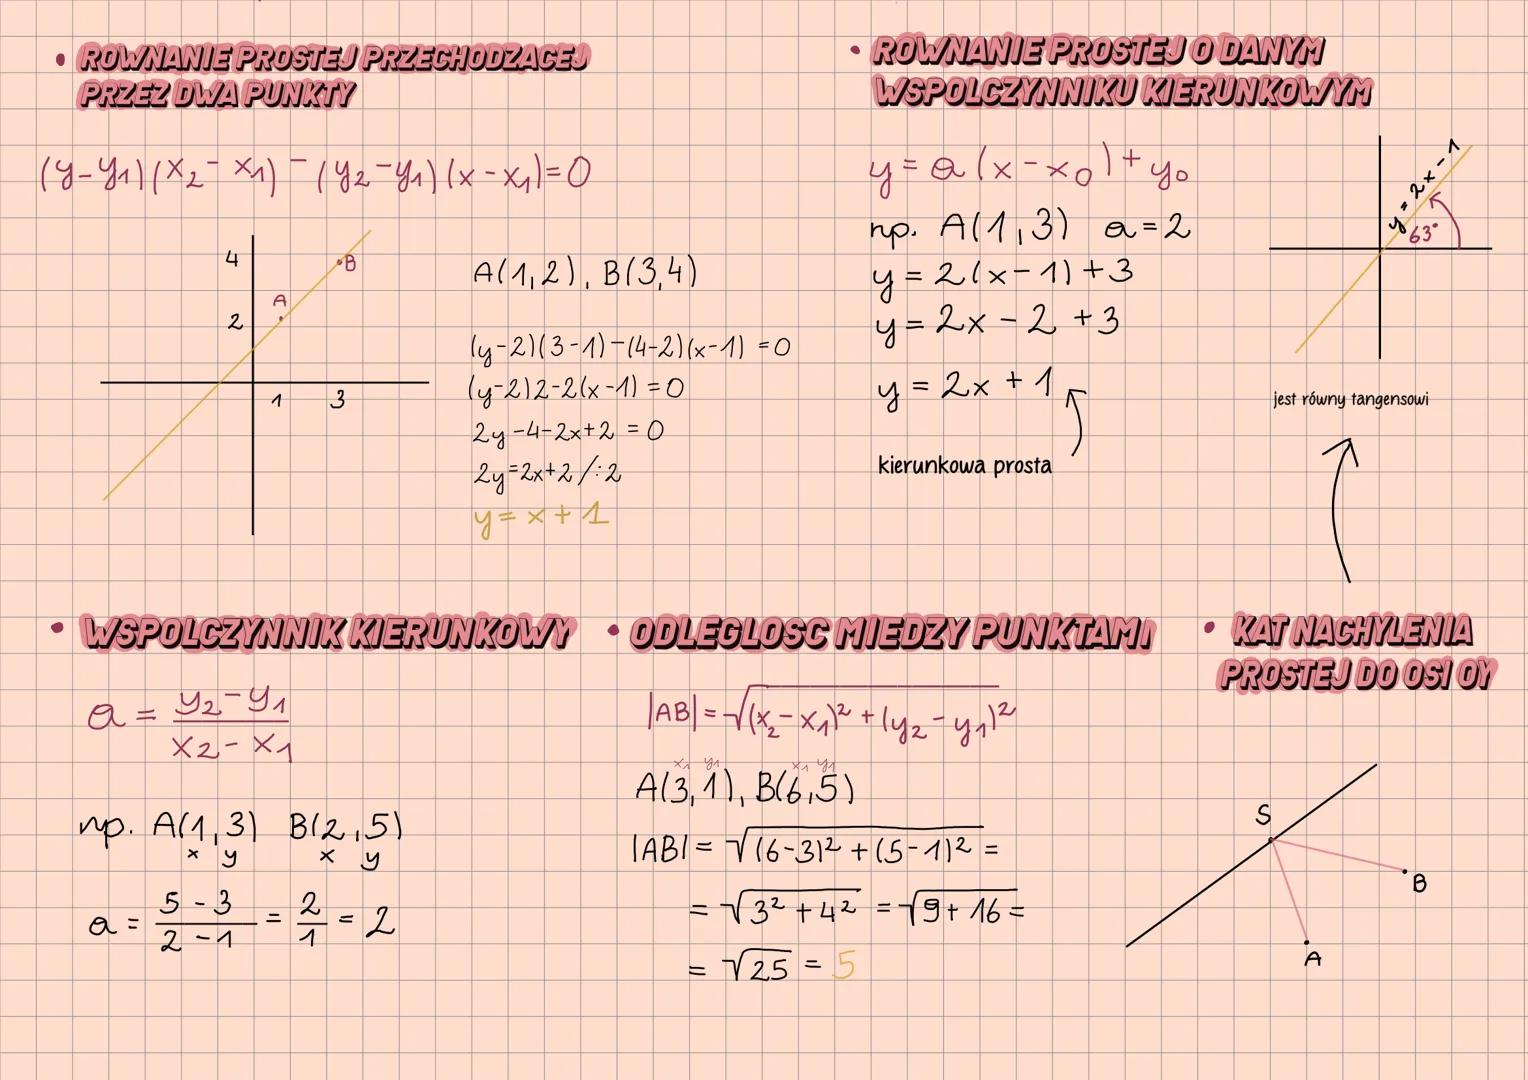 • ROWNANIE PROSTEJ PRZECHODZACEJ
PRZEZ DWA PUNKTY
(y-y₁)(x₂-x₁)-(y₂-y₁)(x-x₁)=0
4
B
A
2
1 3
A(1,2), B(3,4)
(y-2)(3-1)-(4-2)(x-1)=0
(y-2)2-2(x-1)=0
2y-4-2x+2=0
2y=2x+2/:2
y=x+1
• ROWNANIE PROSTEJ O DANYM
WSPOLCZYNNIKU KIERUNKOWYM
y=a(x-x₀)+y₀
np. A(1,3) a=2
y=2(x-1)+3
y=2x-2+3
y=2x+1
kierunkowa prosta
y=2x-1
63°
jest równy tangensowi
• WSPOLCZYNNIK KIERUNKOWY
a = (y₂-y₁)/(x₂-x₁)
np. A(1,3) B(2,5)
x y x y
a = (5-3)/(2-1) = 2/1 = 2
• ODLEGLOSC MIEDZY PUNKTAMI
|AB|=√(x₂-x₁)²+(y₂-y₁)²
x₁ y₁ x₁ y₁
A(3,1), B(6,5)
|AB|=√(6-3)²+(5-1)² =
=√3²+4² =√9+16 =
=√25 = 5
• KAT NACHYLENIA
PROSTEJ DO OSI OY
S
B
A